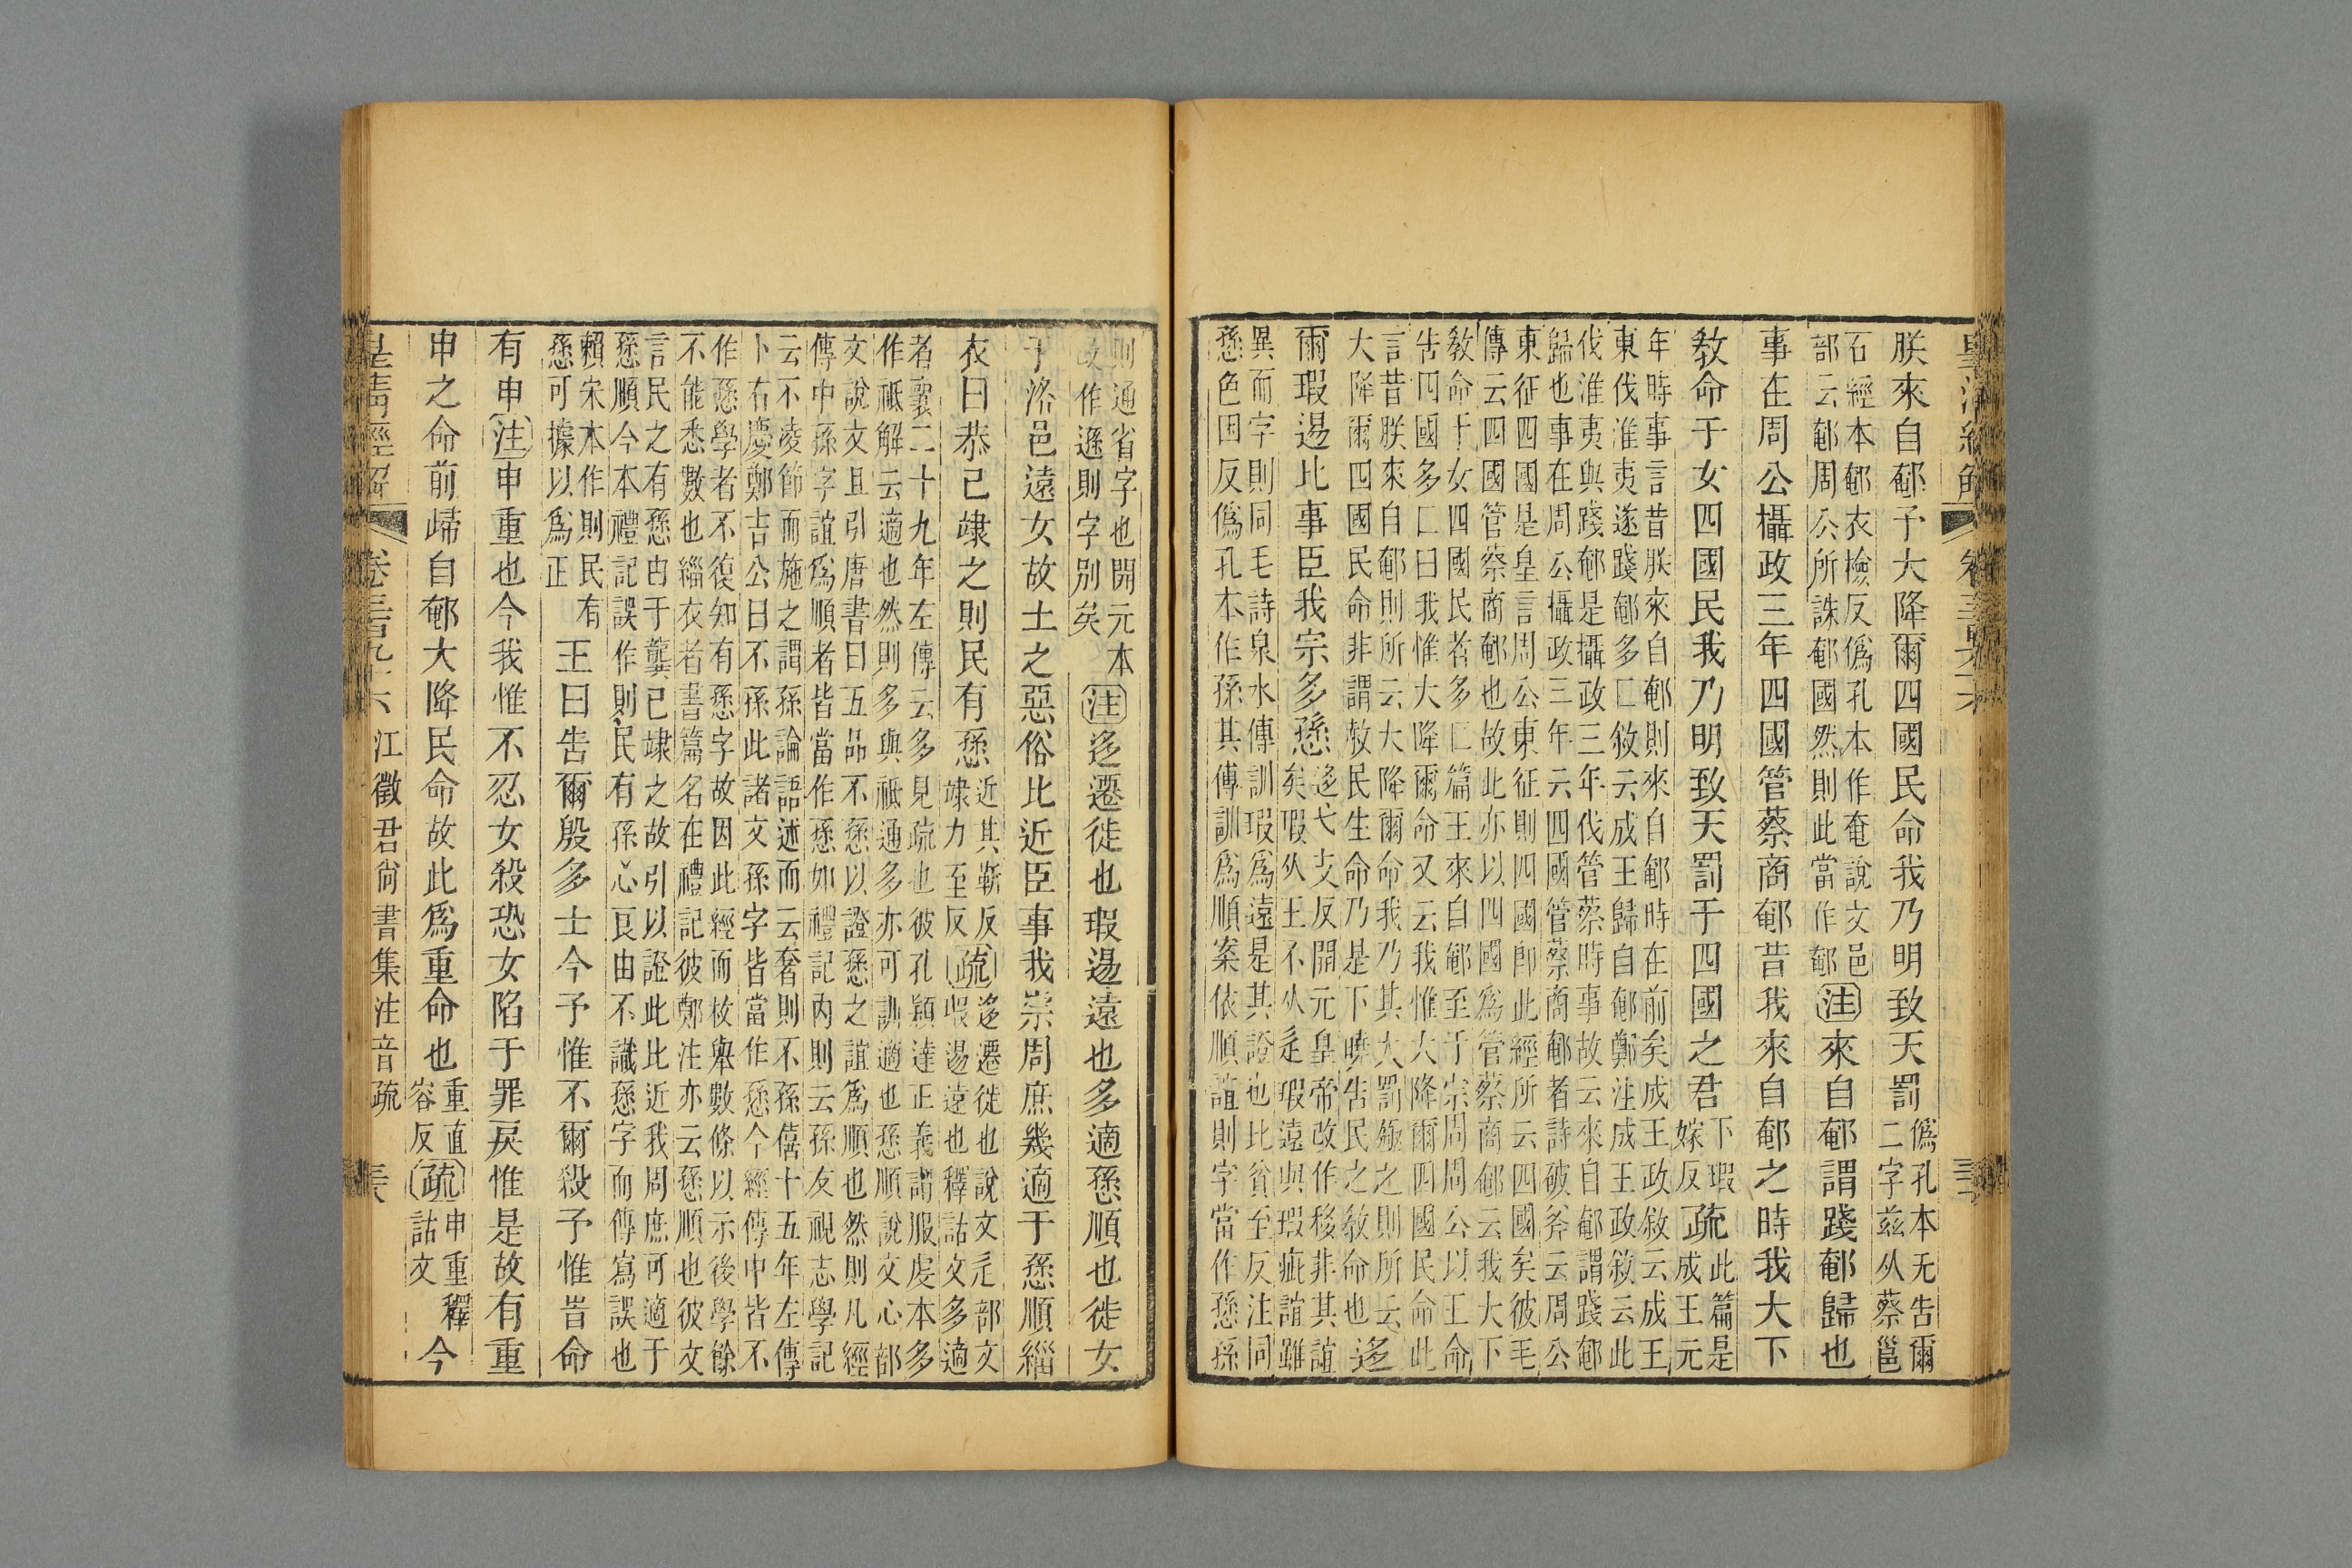 朕來自䣍予大降爾四國民命我乃明致天罰
偽孔本无告爾
二字兹从蔡邕
石經本䣍衣檢反偽孔本作奄說文邑
部云䣍周公所誅䣍國然則此當作䣍
注來自䣍謂踐䣍歸也
事在周公攝政三年四國管蔡商䣍昔我來自䣍之時我大下
敎命于女四國民我乃明致天罰于四國之君
下瑕
嫁反
疏
此篇是
成王元
年時事言昔朕來自䣍則來自䣍時在前矣成王政敘云成王
東伐淮夷遂踐䣍多匚敘云成王歸自䣍鄭注成王政敘云此
伐淮夷與踐䣍是攝政三年伐管蔡時事故云來自䣍謂踐䣍
歸也事在周公攝政三年云四國管蔡商䣍者詩破斧云周公
東征四國是皇言周公東征則四國卽此經所云四國矣彼毛
傳云四國管蔡商䣍也故此亦以四國爲管蔡商䣍云我大下
敎命于女四國民者多匚篇王來自䣍至于宗周周公以王命
告四國多匚曰我惟大降爾命又云我惟大降爾四國民命此
言昔朕來自䣍則所云大降爾命我乃其大罰殛之則所云
大降爾四國民命非謂赦民生命乃是下曉告民之敎命也
迻
爾瑕逿比事臣我宗多愻
迻弋支反開元皇帝改作移非其誼
矣瑕从王不从辵瑕遠與瑕疵誼雖
異而字則同毛詩泉水傳訓瑕爲遠是其證也比貧至反注同
愻色困反偽孔本作孫其傳訓爲順案依順誼則字當作愻孫
則通省字也開元本
改作遜則字別矣
注迻遷徙也瑕逿遠也多適愻順也徙女
于洛邑遠女故土之惡俗比近臣事我崇周庶幾適于愻順緇
衣曰恭己竦之則民有愻
近其靳反
竦力至反
疏
迻遷徙也說文辵部文
瑕逿遠也釋詁文多適
者襄二十九年左傳云多見疏也彼孔穎達正義謂服虔本多
作祗解云適也然則多與祗通多亦可訓適也愻順說文心部
文說文且引唐書曰五品不愻以證愻之誼爲順也然則凡經
傳中孫字誼爲順者皆當作愻如禮記內則云孫友視志學記
云不凌節而施之謂孫論語述而云奢則不孫僖十五年左傳
卜右慶鄭吉公曰不孫此諸文孫字皆當作愻今經傳中皆不
作愻學者不復知有愻字故因此經而枚舉數條以示後學餘
不能悉數也緇衣者書篇名在禮記彼鄭注亦云愻順也彼文
言民之有愻由于龔己竦之故引以證此比近我周庶可適于
愻順今本禮記誤作則民有孫心良由不識愻字而傳寫誤也
賴宋本作則民有
愻可據以爲正
王曰告爾殷多士今予惟不爾殺予惟旹命
有申注申重也今我惟不忍女殺恐女陷于罪戾惟是故有重
申之命前歸自䣍大降民命故此爲重命也
重直
容反
疏
申重釋
詁文
今
皇清經解
卷三百九十六
江徵君尙書集注音疏